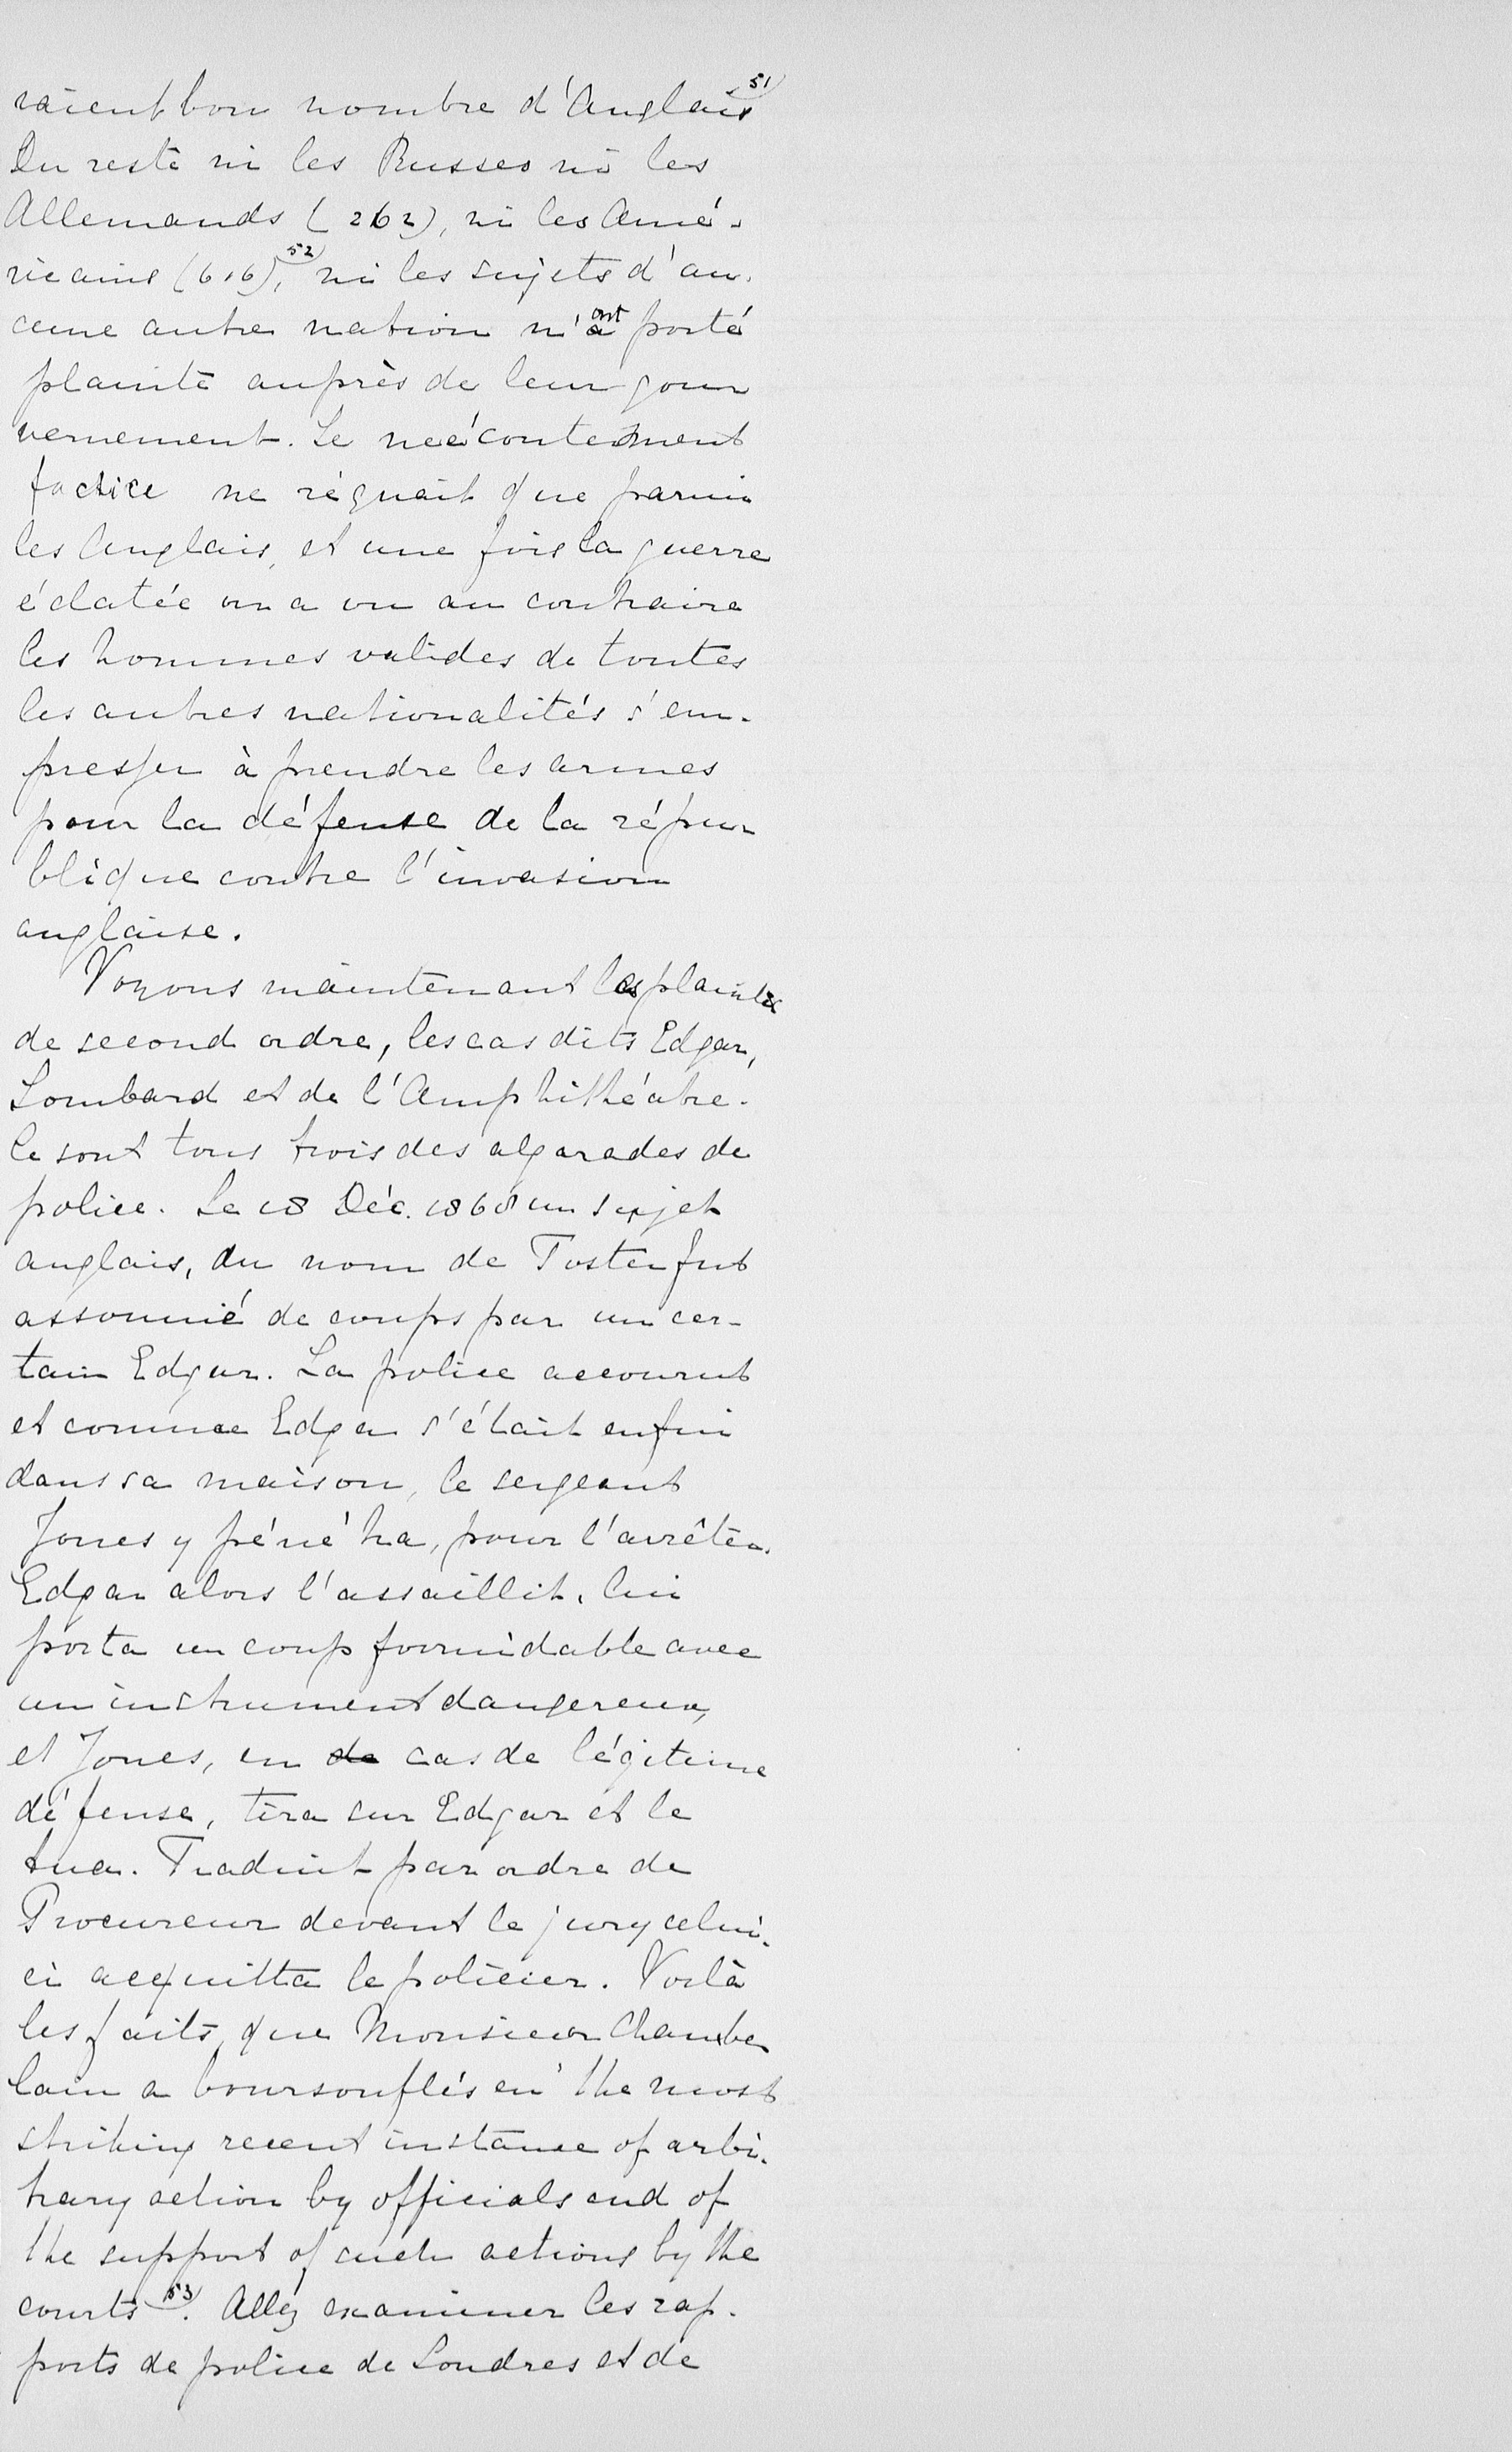 raient bon nombre d'Anglais 51)
Du reste ni les Russes ni les
Allemands (262), ni les Amé-
ricains (616), 52) ni les sujets d'au-
cune autre nation n'ont porté
plainte auprès de leur gou-
vernement. Le mécontentement
factice ne régnait que parmi
les Anglais, et une fois la guerre
éclatée on a vu au contraire
les hommes valides de toutes
les autres nationalités s'em-
presser à prendre les armes
pour la défense de la répu-
blique contre l'invasion
anglaise.
Voyons maintenant les plaintes
de second ordre, les cas dits Edgar,
Lombard et de l'Amphithéatre.
Ce sont tous trois des algarades de
police. Le 18 Déc. 1868 un sujet
anglais, du nom de Foster fut
assommé de coups par un cer-
tain Edgar. La police accourut
et comme Edgar s'était enfui
dans sa maison, le sergeant
Jones y pénétra, pour l'arrêter.
Edgar alors l'assaillit, lui
porta un coup formidable avec
un instrument dangereux,
et Jones, en de cas de légitime
défense, tira sur Edgar et le
tua. Traduit par ordre de
Procureur devant le jury celui-
ci acquitta le policier. Voilà
les faits, que Monsieur Chamber
lain a boursouflés en "the most
striking recent instance of arbi-
trary action by officials and of
the support of such actions by the
courts 53). Allez examiner les rap-
ports de police de Londres et de